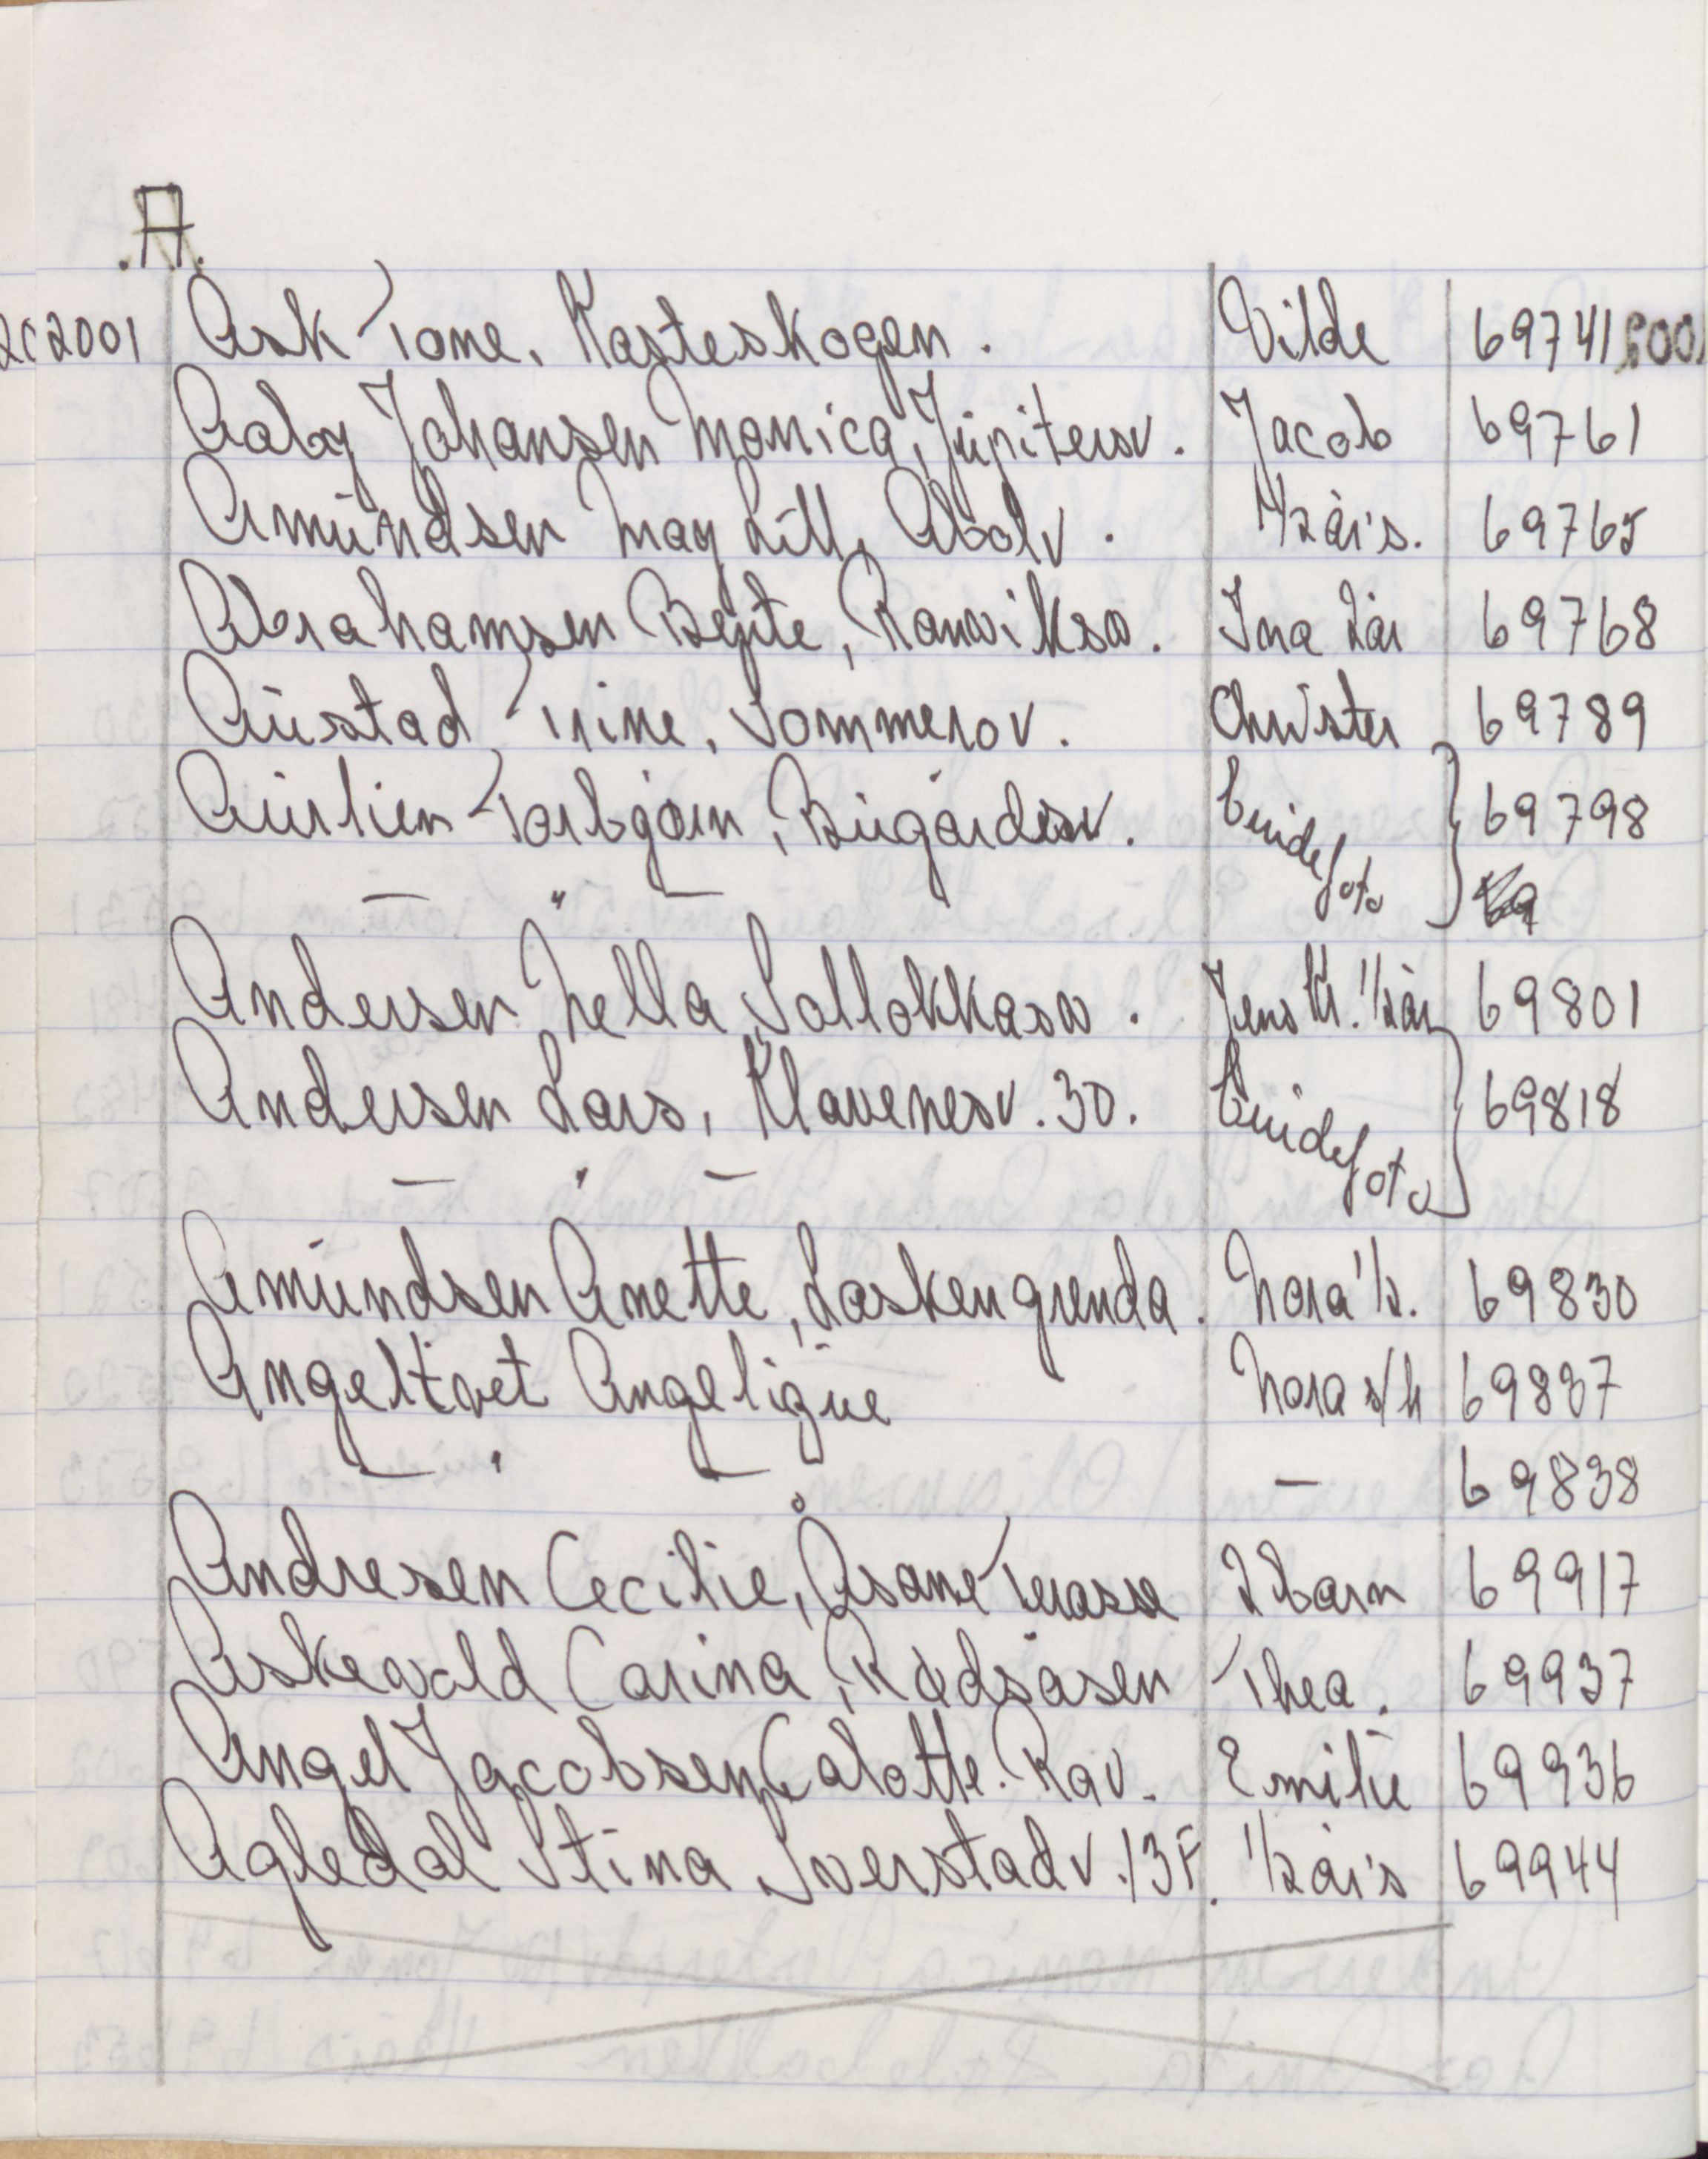 .A.
2001 Ask Tone, Kasteskogen. Vilde 69741
Aaby Johansen Monica, Jupiterv. Jacob 69761
Amundsen May Lill, Abolv. 1/2 år's. 69765
Abrahamsen Bente, Ranviksv. Ina 2år 69768
Austad Trine, Sommerov. Christer 69789
Aurlien Torbjørn, Bugårdsv. Brudefoto } 69798
— " —
Andersen Nella, Sollokkasv. Jens Kr. 1/2år 69801
Andersen Lars, Klavenesv. 30. Brudefoto } 69818
— " —
Amundsen Anette, Laskengrenda. Nora 1/2. 69830
Angeltvet Angelique Nora s/h 69837
— " — — 69838
Andresen Cecilie, Åsane Terasse 2 barn 69917
Askevold Carina, Rødsåsen Thea. 69937
Angel Jacobsen Calotte. Rav. Emilie 69936
Agledal Stina Sverstadv. 13F. 1/2 år's 69944